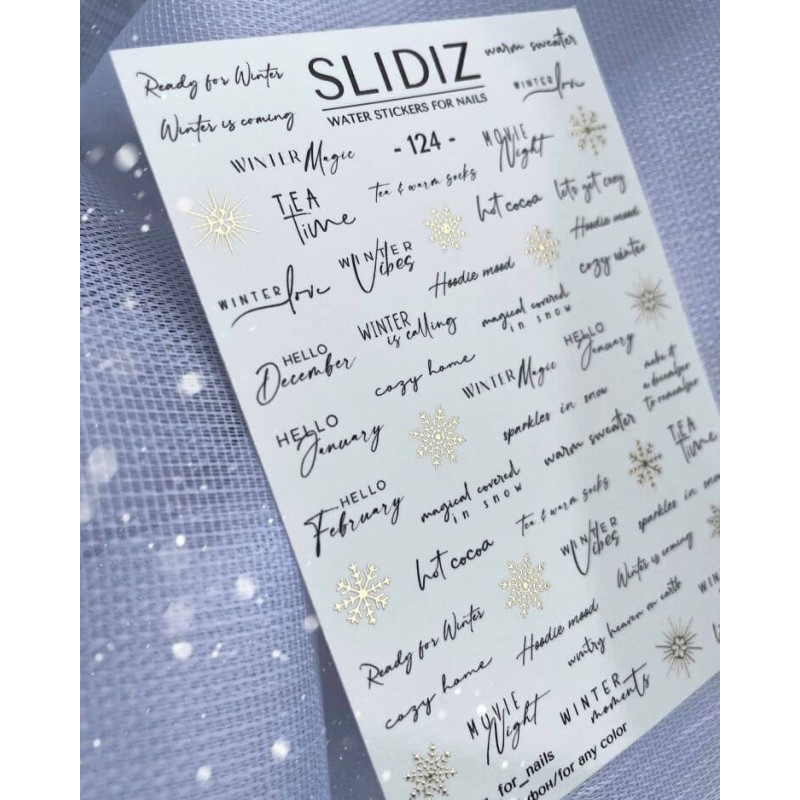 Ready for Winter
SLIDIZ
warm sweater
WATER STICKERS FOR NAILS
WINTER love
Winter is coming
- 124 -
MOVIE
Night
WINTER Magic
TEA
Time
tea & warm socks
hot cocoa
let's get cozy
Hoodie mood
WINTER love
WINTER
Vibes
Hoodie mood
cozy winter
HELLO
December
WINTER
is calling
magical covered
in snow
HELLO
January
cozy home
WINTER Magic
make it
a december
to remember
HELLO
January
sparkles in snow
warm sweater
TEA
Time
HELLO
February
magical covered
in snow
tea & warm socks
sparkles in snow
hot cocoa
WINTER
Vibes
Winter is coming
Ready for Winter
Hoodie mood
wintry heaven on earth
cozy home
MOVIE
Night
WINTER
moments
for_nails
фон/for any color